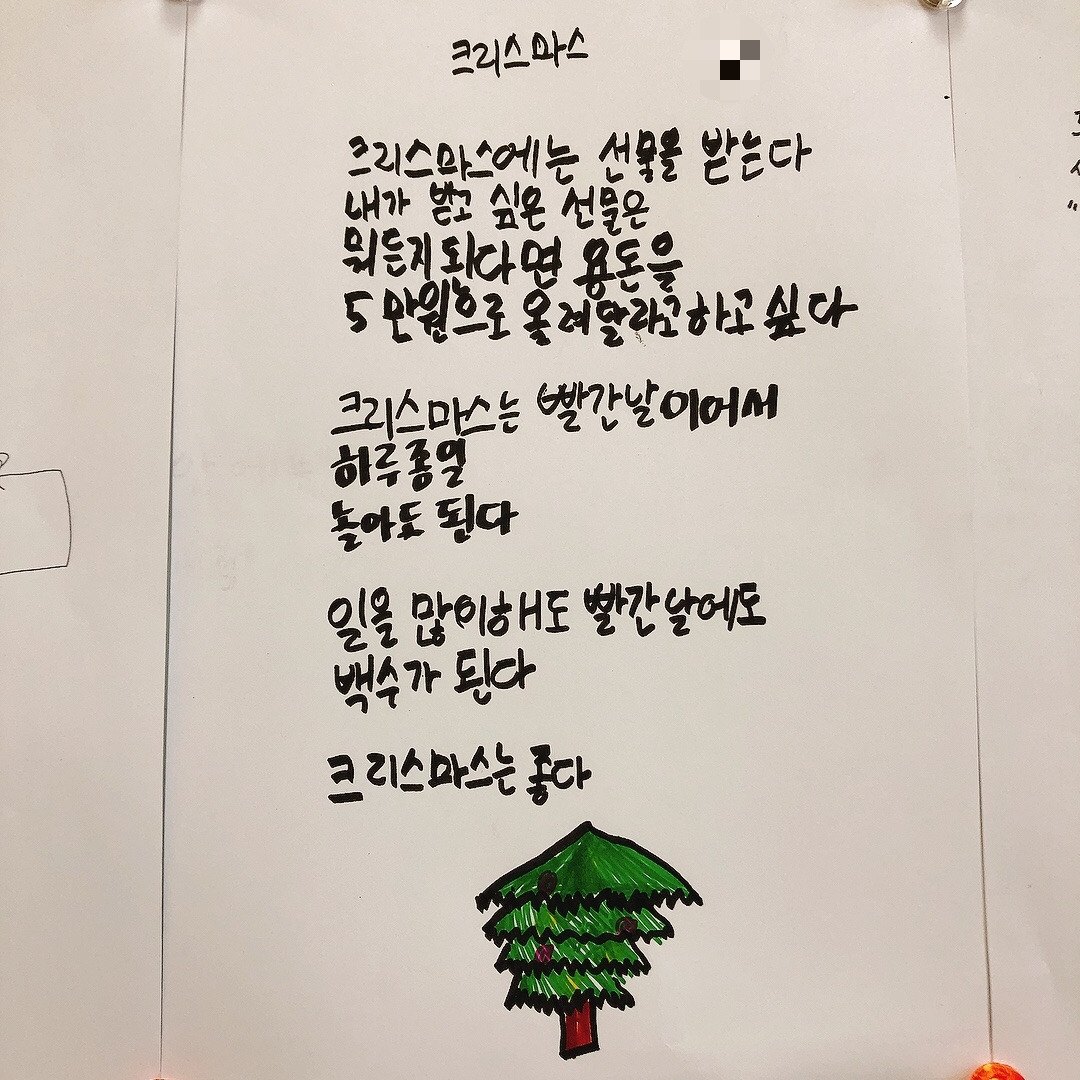 크리스마스
크리스마스에는 선물을 받는다
내가 받고 싶은 선물은
뭐든지 되다면 용돈을
5만원으로 올려달라고하고싶다
크리스마스는 빨간날이어서
하루종일
놀아도 된다
일을 많이해도 빨간날에도
백수가 된다
크리스마스는 좋다